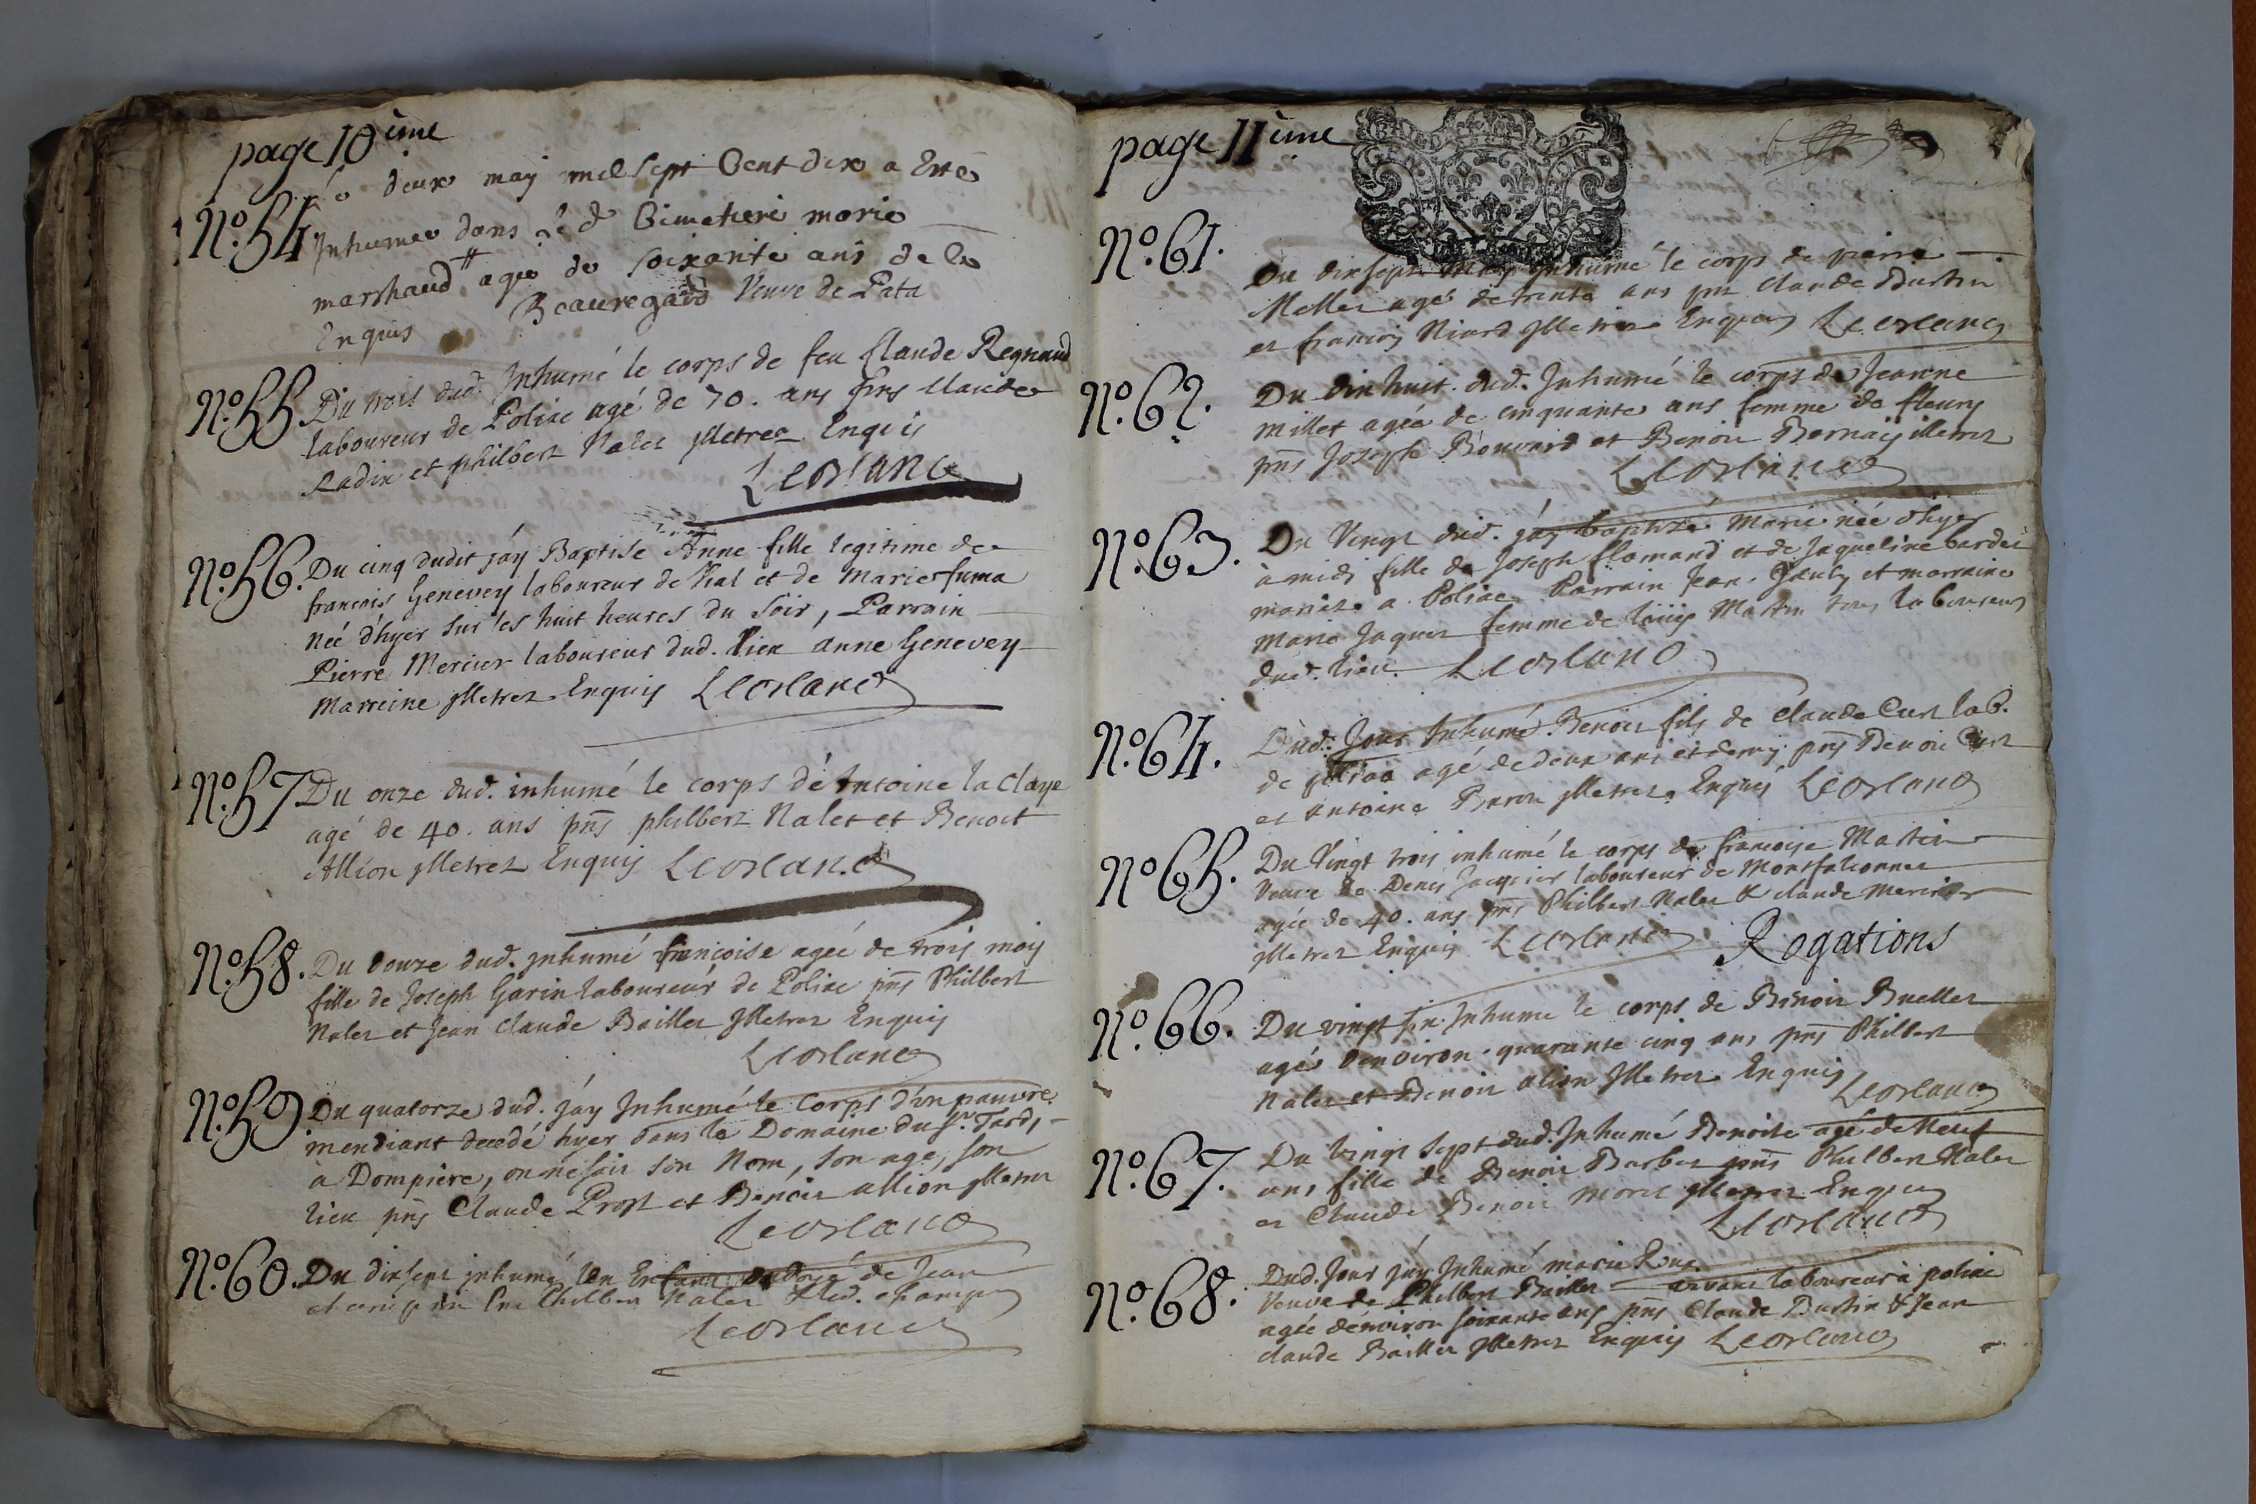 page 10 ième
N.º 54. Le deux may mil sept Cent dix a Esté
Inhumeé dans led Cimetiere marie
marchand # ageé de soixante ans de la
Enquis Beauregard Veuve de Pata
N.º 55. Du trois dud. Inhumé le corps de feu Claude Regnaud
laboureur de Poliac agé de 70. ans pñs Claude
Radix et philbert Nalet Illetrez Enquis
Leorland
N.º 56. Du cinq dudit jáy Baptisé Anne fille legitime de
francois Genevey laboureur de et de Marie
Neé d'hyer sur les huit heures du Soir, Parrain
Pierre Mercier laboureur dud. lieu anne Genevey
Marreine Illetrez Enquis Leorland
N.º 57. Du onze dud. inhumé le corps d'Antoine la Claye
agé de 40. ans pñs philbert Nalet et Benoit
Allion Illetrez Enquis Leorland
N.º 58. Du douze dud. Inhumé francoise ageé de trois mois
fille de Joseph Garin laboureur de Poliac pñs Philbert
Nalet et Jean Claude Baillet Illetrez Enquis
Leorland
N.º 59. Du quatorze dud. jáy Inhumé le Corps d'un pauvre
mendiant decedé hyer dans le Domaine du Sr. Tardy
à Dompiere, on ne sait son Nom, son age, son
lieu pñs Claude Prost et Benoit allion Illetrez
Leorland
N.º 60. Du dix sept inhumé Un Enfant ondoyé de Jean
Philbert Nalet
Leorland
page 11 ième
N.º 61.
Du dix sept May Inhumé le corps de pierre
Mellet agé de trente ans pñs Claude Bustin
et francois Niard Illetrez Enquis Leorland
N.º 62. Du dix huit dud. Inhumé le corps de Jeanne
millet ageé de cinquante ans femme de fleury
pñs Joseph Bouvard et Benoit Bernay illetrez
Leorland
N.º 63. Du Vingt dud. jáy baptizé Marie neé d'hyer
à midi fille de Joseph flamand et de Jaqueline bardet
mariez a Poliac Parrain Jean Gauly et marraine
Marie Jaquet femme de Martin tous laboureurs
dud. lieu. Leorland
N.º 64. Dud. Jour Inhumé Benoit fils de Claude Curt lab.
de poliac agé de deux ans et demy pñs Benoit Curt
et antoine Baron Illetrez Enquis Leorland
N.º 65. Du Vingt trois inhumé le corps de francoise Martin
Veuve de Denis Jacquier laboureur de Montfalconnet
ageé de 40. ans pñs Philbert Nalet & claude Mercier
Illetrez Enquis Leorland Rogations
N.º 66. Du vingt six Inhumé le corps de Benoit Buellet
agé denviron quarante cinq ans pñs Philbert
Nalet et Benoit alion Illetrez Enquis
Leorland
N.º 67. Du Vingt sept dud. Inhumé Benoite agé de Neuf
ans fille de Benoit Barbet pñs Philbert Nalet
et Claude Benoit Morel Illetrez Enquis
Leorland
N.º 68. Dud. Jour jáy Inhumé marie
Veuve de Philbert Baillet vivant laboureur à poliac
agée denviron soixante ans pñs Claude Bustin & Jean
claude Baillet Illetrez Enquis Leorland